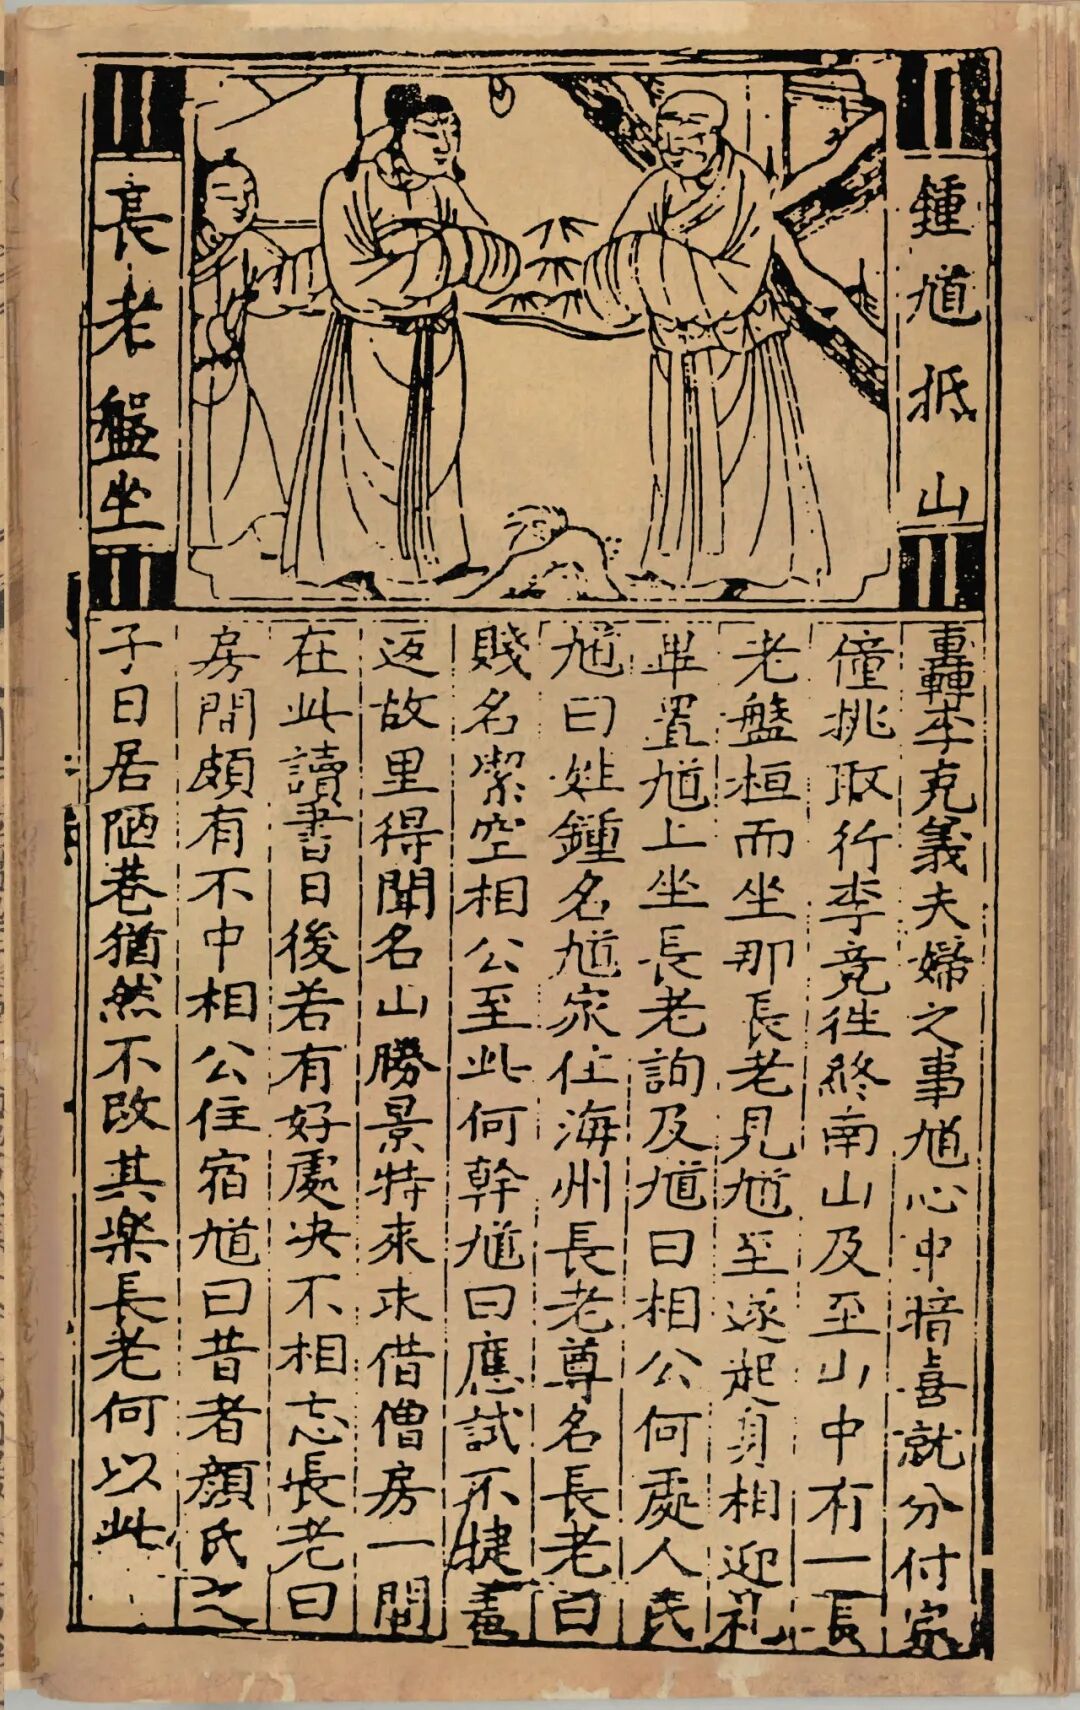 鍾馗抵山
長老盤坐
李克義夫婦之事馗心中暗喜就分付家
僮挑取行李竟徃終南山及至山中有一長
老盤桓而坐那長老見馗至遂起身相迎礼
畢置馗上坐長老詢及馗曰相公何處人氏
馗曰姓鍾名馗家住海州長老尊名長老曰
賤名潔空相公至此何幹馗曰應試不捷羞
返故里得聞名山勝景特來求借僧房一間
在此讀書日後若有好處决不相忘長老曰
房間頗有不中相公住宿馗曰昔者顏氏之
子日居陋巷猶然不改其樂長老何以此